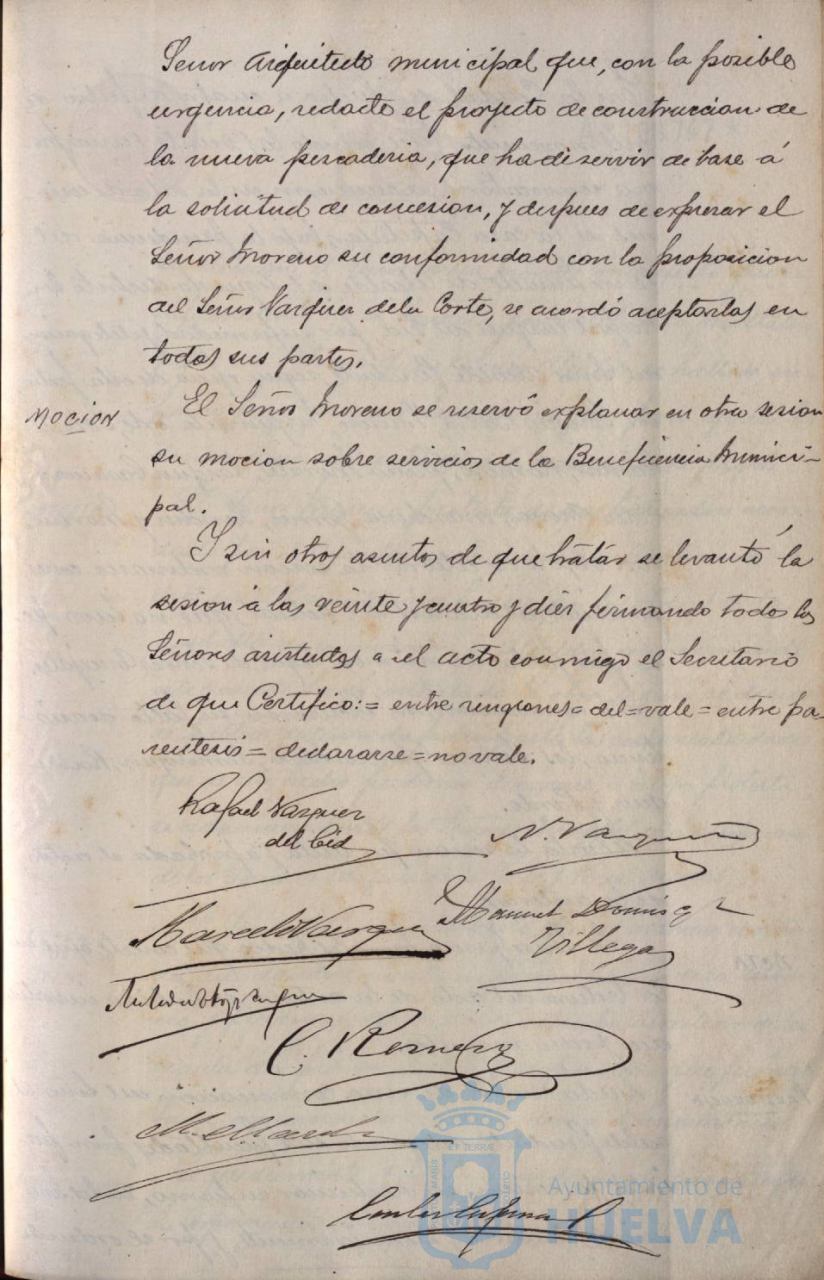 Señor Arquitecto municipal que, con la posible
urgencia, redacte el proyecto de construccion de
la nueva pescaderia, que ha de servir de base á
la solicitud de concesion, y despues de expresar el
Señor Moreno su conformidad con la proposicion
del Señor Vazquez de la Corte, se acordó aceptarlas en
todas sus partes.
MOCION
El Señor Moreno se reservó explanar en otra sesion
su mocion sobre servicios de la Beneficencia Munici-
pal.
Y sin otros asuntos de que tratár se levantó la
sesion á las veinte y cuatro y diez firmando todos los
Señores asistentes a el acto conmigo el Secretario
de que Certifico:= entre renglones= del=vale= entre pa-
rentesis= declararse=no vale.
Rafael Vazquez
del Cid
N. Vazquez
Marcelo Vazquez
Manuel Doming
Villegas
C. Romero
Ayuntamiento de
HUELVA